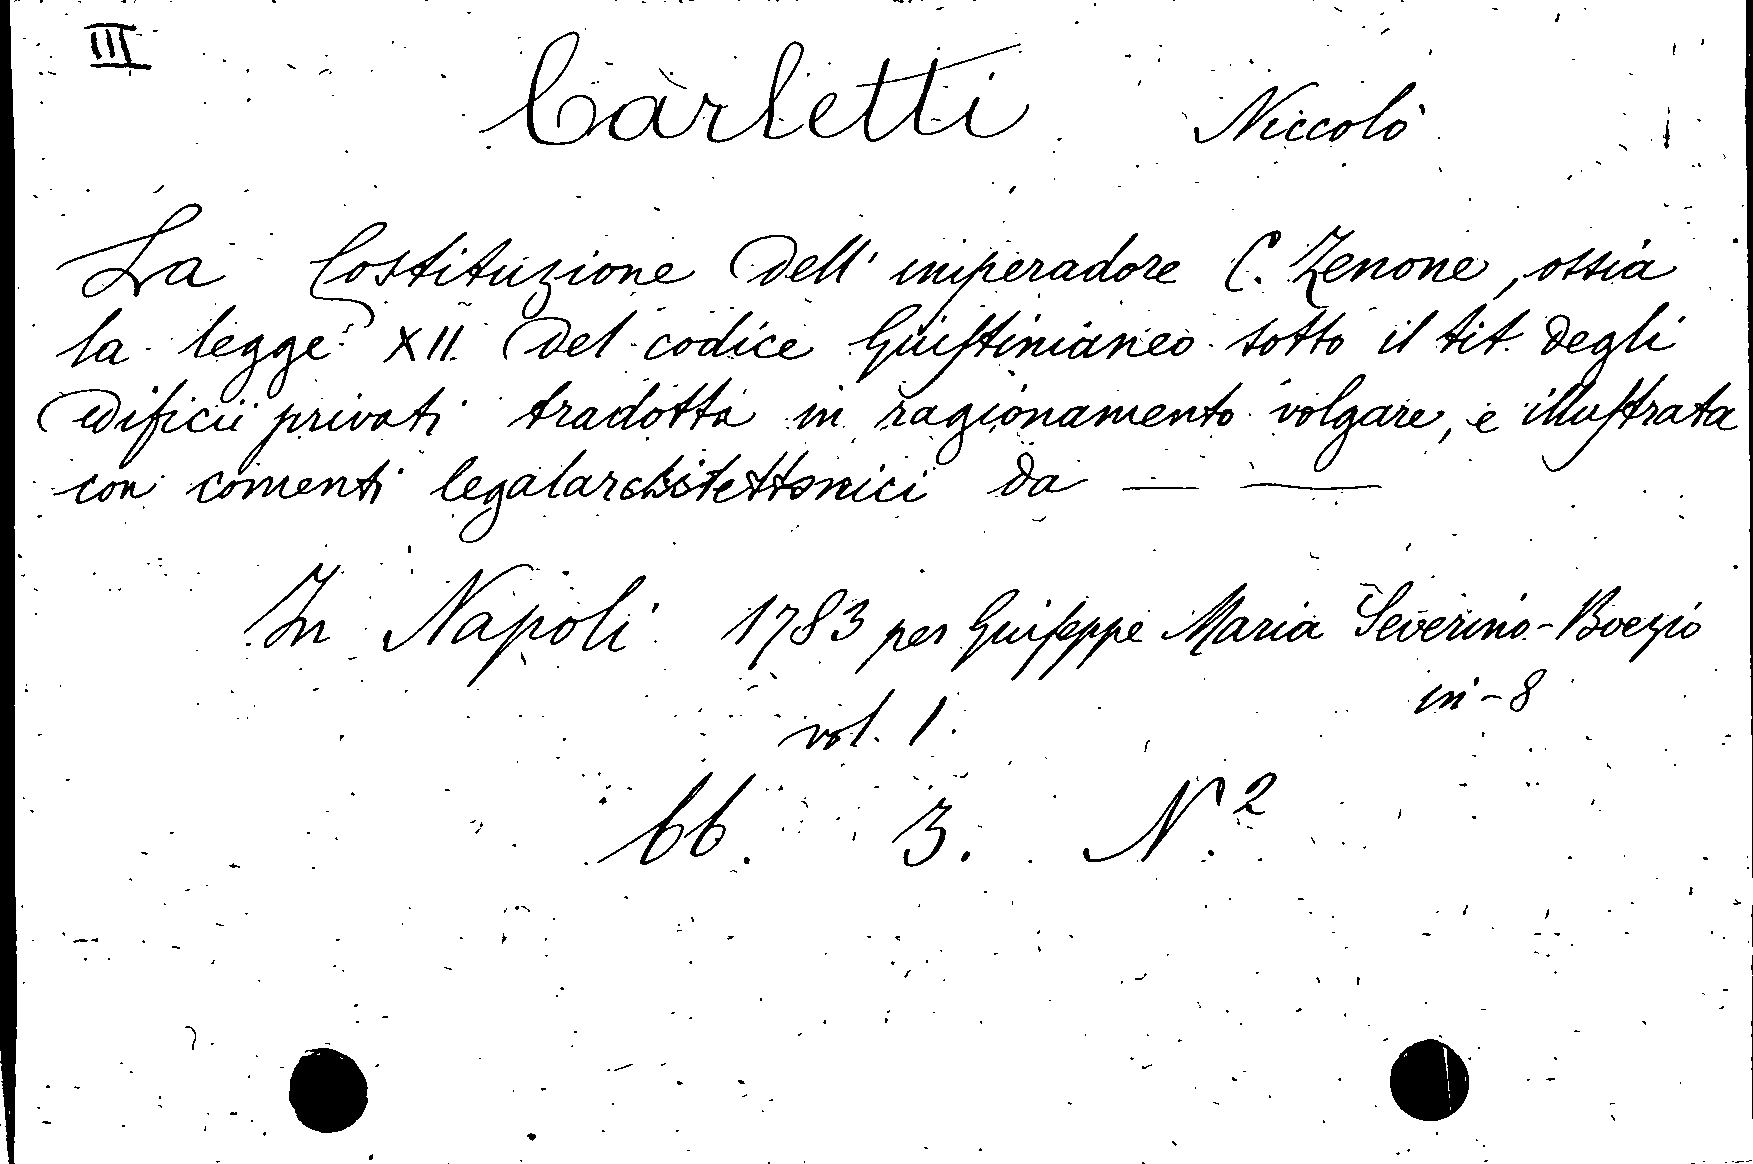 III
Carletti Niccolò
La Costituzione dell' imperadore C. Zenone, ossia
la legge XII. del codice Giustinianeo sotto il tit. degli
edificii privati tradotta in ragionamento volgare, e illustrata
con comenti legalarchitettonici da — —
In Napoli 1783 per Giuseppe Maria Severino-Boezio
in-8
vol. 1.
66. 3. N.2